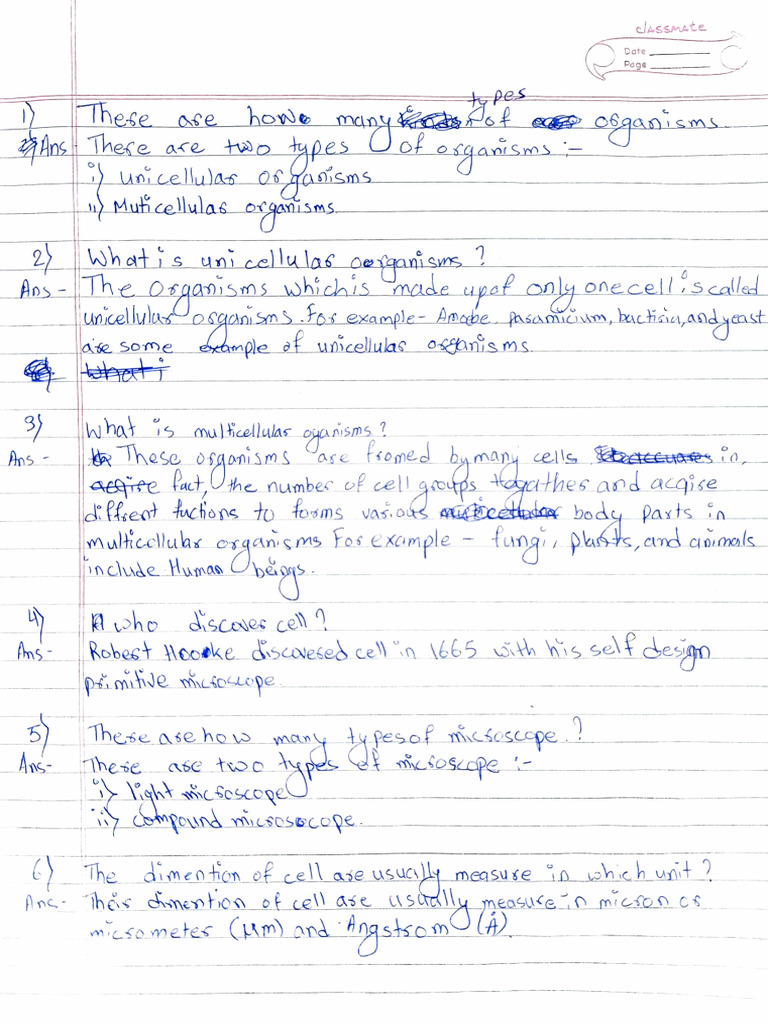 classmate
Date
Page
1) There are how many types of organisms.
Ans - There are two types of organisms :-
i) Unicellular organisms
ii) Muticellular organisms.
2) What is unicellular oorganisms ?
Ans - The Organisms which is made up of only one cell is called
unicellular organisms. For example - Amoebe, paramicium, bactiria, and yeast
are some example of unicellular organisms.
What i
3) What is multicellular oganisms ?
Ans - These organisms are fromed by many cells in,
fact, the number of cell groups togather and acqise
diffrent fuctions to forms various body parts in
multicellular organisms For example - fungi, plants, and animals
include Human beings.
4) who discover cell ?
Ans - Robert Hooke discovered cell in 1665 with his self design
primitive microscope.
5) There are how many types of microscope. ?
Ans - There are two types of microscope :-
i) light microscope
ii) compound microscope.
6) The dimention of cell are usually measure in which unit ?
Ans - Their dimention of cell are usually measure in micron or
micrometer (μm) and Angstrom (Å)